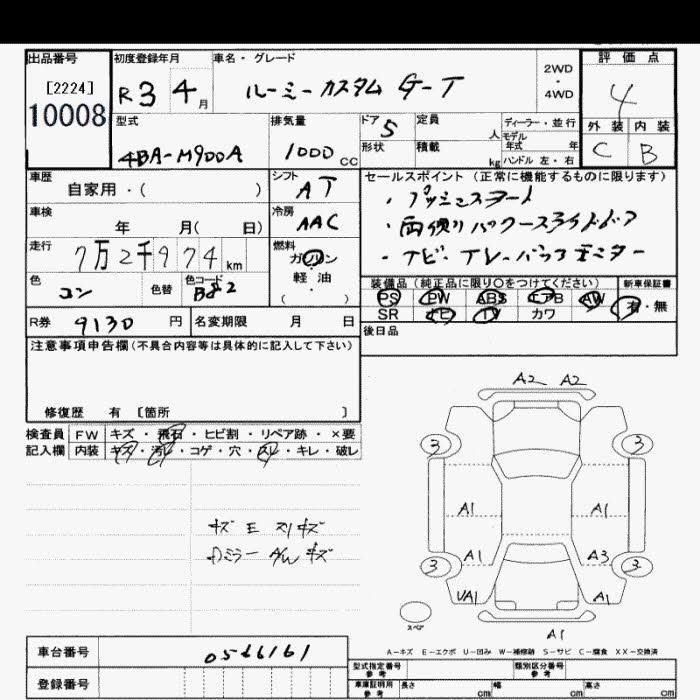 出品番号
[2224]
10008
初度登録年月
R3 4月
車名・グレード
ルーミーカスタム G-T
2WD
・
4WD
評価点
4
外装 内装
C B
型式
4BA-M900A
排気量
1000 cc
ドア 5
形状
定員 人
積載 kg
ディーラー・並行
モデル
年式 年
ハンドル 左・右
車歴
自家用・( )
シフト
AT
車検
年 月( 日)
冷房
AAC
走行
7万2千974km
燃料
ガソリン
・
軽油
( )
色
コン
色替
色コード
B82
セールスポイント (正常に機能するものに限ります)
・プッシュスタート
・両側リパワースライドドア
・ナビ・TV・バックモニター
装備品(純正品に限り〇をつけてください)
新車保証書
PS PW ABS エアB AW
SR ナビ TV カワ
有・無
R券 9130 円
名変期限 月 日
後日品
注意事項申告欄(不具合内容等は具体的に記入して下さい)
修復歴 有 [箇所 ]
検査員
記入欄
FW キズ・飛石・ヒビ割・リペア跡・×要
内装 キズ・汚レ・コゲ・穴・スレ・キレ・破レ
キズ E スリキズ
ミラー A/W キズ
A2 A2
3 3
A1 A1
A1 A3
3 3
UA1 A1
スペア
A1
A-キズ E-エクボ U-凹み W-補修跡 S-サビ C-腐食 XX-交換済
車台番号 0566161
登録番号
型式指定番号
参考
類別区分番号
参考
車庫証明用
参考
長さ cm 幅 cm 高さ cm